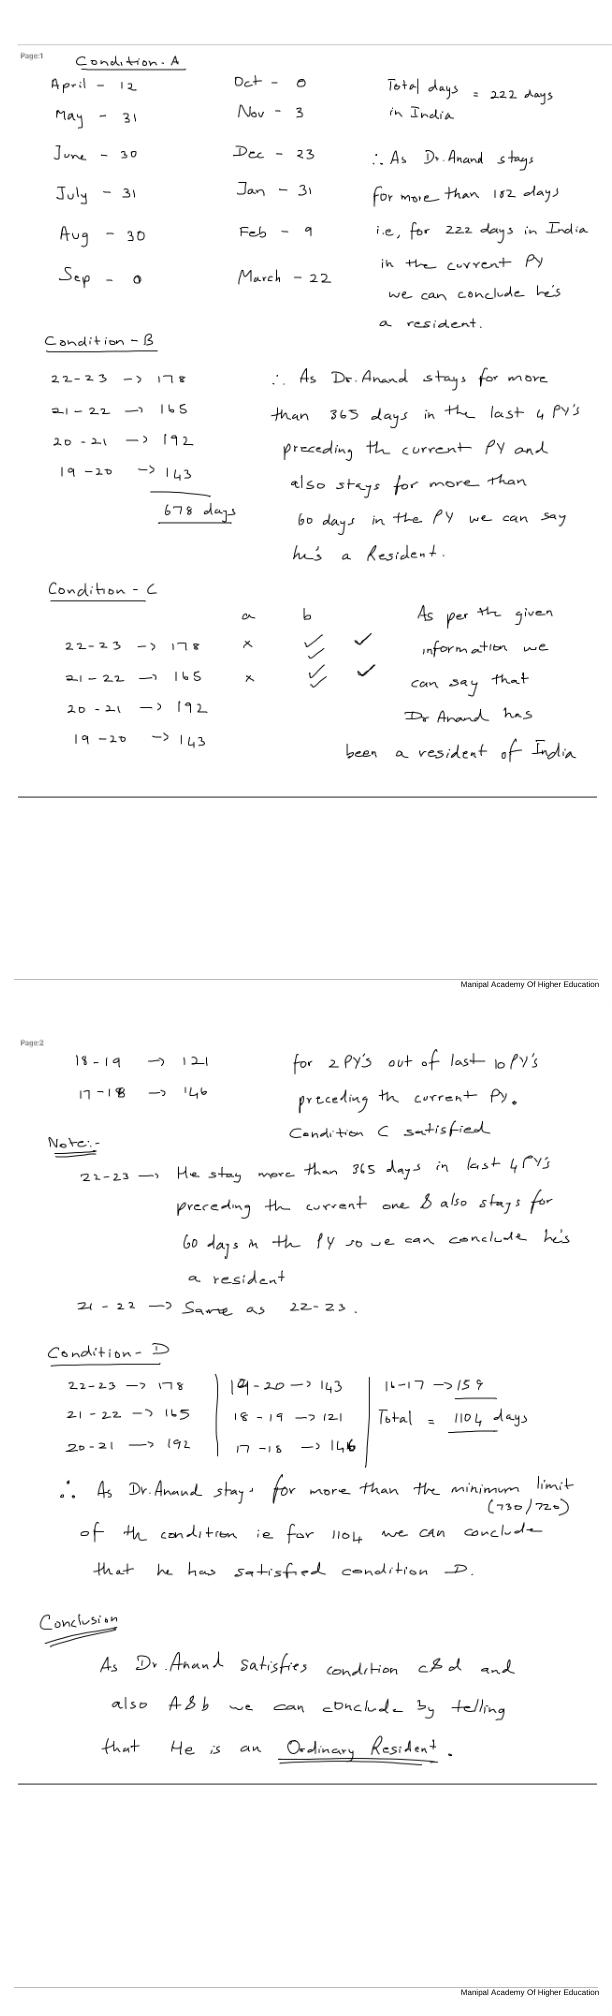 Page:1
Condition. A
April - 12
May - 31
June - 30
July - 31
Aug - 30
Sep - 0
Oct - 0
Nov - 3
Dec - 23
Jan - 31
Feb - 9
March - 22
Total days = 222 days
in India
∴ As Dr. Anand stays
for more than 182 days
i.e, for 222 days in India
in the current PY
we can conclude he's
a resident.
Condition - B
22-23 -> 178
21-22 -> 165
20-21 -> 192
19-20 -> 143
678 days
∴ As Dr. Anand stays for more
than 365 days in the last 4 PY's
preceding the current PY and
also stays for more than
60 days in the PY we can say
he's a Resident.
Condition - C
a b
22-23 -> 178 x ✓✓ ✓
21-22 -> 165 x ✓✓ ✓
20-21 -> 192
19-20 -> 143
As per the given
information we
can say that
Dr Anand has
been a resident of India
Manipal Academy Of Higher Education
Page:2
18-19 -> 121
17-18 -> 146
for 2 PY's out of last 10 PY's
preceding th current PY.
Condition C satisfied
Note:-
22-23 -> He stay more than 365 days in last 4 PY's
preceding the current one & also stays for
60 days in the PY so we can conclude he's
a resident
21-22 -> Same as 22-23.
Condition - D
22-23 -> 178
21-22 -> 165
20-21 -> 192
19-20 -> 143
18-19 -> 121
17-18 -> 146
16-17 -> 159
Total = 1104 days
∴ As Dr. Anand stays for more than the minimum limit
(730/720)
of th condition ie for 1104 we can conclude
that he has satisfied condition D.
Conclusion
As Dr. Anand satisfies condition c&d and
also A&b we can conclude by telling
that He is an Ordinary Resident.
Manipal Academy Of Higher Education